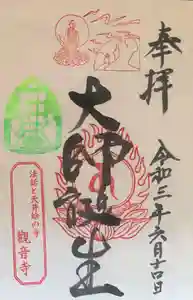 奉拝
令和三年六月十日
大師誕生
法話と天井絵の寺
観音寺